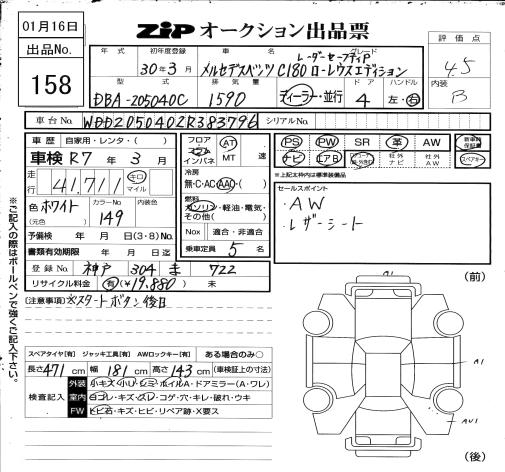 01月16日
ZIP オークション出品票
出品No.
158
年式
初年度登録
30年3月
車名
メルセデスベンツ C180
グレード
レーダーセーフティP
ローレウスエディション
評価点
4.5
内装
B
型式
DBA-205040C
排気量
1590
ディーラー・並行
ドア
4
ハンドル
左・右
車台No.
WDD2050402R383796
シリアルNo.
車歴 自家用・レンタ・( )
車検 R7年3月
走行 41,711 キロ マイル
色 ホワイト
(元色)
カラーNo.
149
内装色
予備検 年 月 日(3・8)No.
書類有効期限 年 月 日迄
登録No. 神戸 304 ま 722
リサイクル料金 有(¥19,880) 未
(注意事項)※スタートボタン後日
フロア
コラム
インパネ
AT
MT 速
冷房
無・C・AC・AAC・( )
燃料
ガソリン・軽油・電気・
その他( )
Nox 適合・非適合
乗車定員 5 名
PS PW SR 革 AW 新車時保証書
ナビ エアB 社外ナビ 社外AW スペアキー
※上記太枠内は標準装備品
セールスポイント
・AW
・レザーシート
(前)
スペアタイヤ[有] ジャッキ工具[有] AWロックキー[有] ある場合のみ〇
長さ 471 cm 幅 181 cm 高さ 143 cm (車検証上の寸法)
検査記入
外装 小キズ・小U・シミ・ホイルA・ドアミラー(A・ワレ)
室内 ヨゴレ・キズ・スレ・コゲ・穴・キレ・破れ・ウキ
FW ヒビ石・キズ・ヒビ・リペア跡・X要ス
A1
AU1
(後)
※ご記入の際はボールペンで強くご記入下さい。